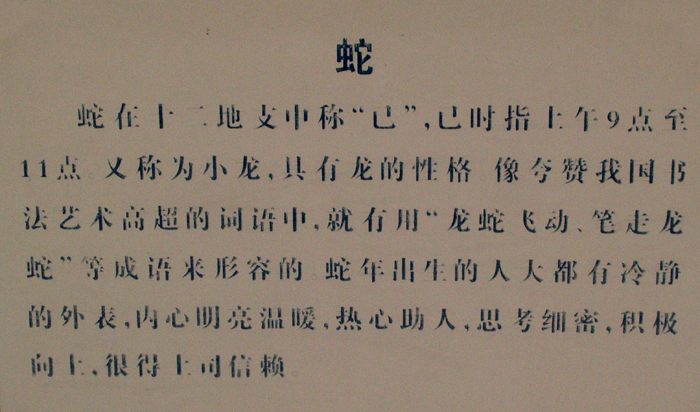 蛇
蛇在十二地支中称“巳”,巳时指上午9点至
11点。又称为小龙,具有龙的性格。像夸赞我国书
法艺术高超的词语中,就有用“龙蛇飞动、笔走龙
蛇”等成语来形容的。蛇年出生的人大都有冷静
的外表,内心明亮温暖,热心助人,思考细密,积极
向上,很得上司信赖。